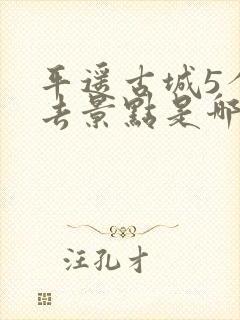 平遥古城5个
去景點是哪
汪孔才